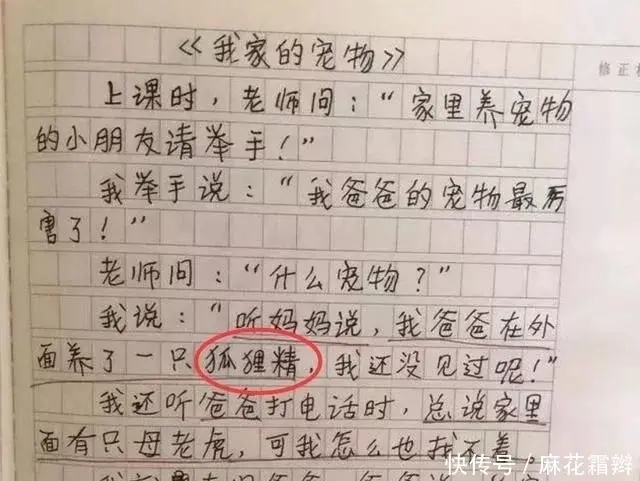 《我家的宠物》
修正栏
上课时，老师问："家里养宠物
的小朋友请举手！"
我举手说："我爸爸的宠物最厉
害了！"
老师问："什么宠物？"
我说："听妈妈说，我爸爸在外
面养了一只狐狸精，我还没见过呢！"
我还听爸爸打电话时，总说家里
面有只母老虎，可我怎么也找不着。
快传号／麻花霜辫